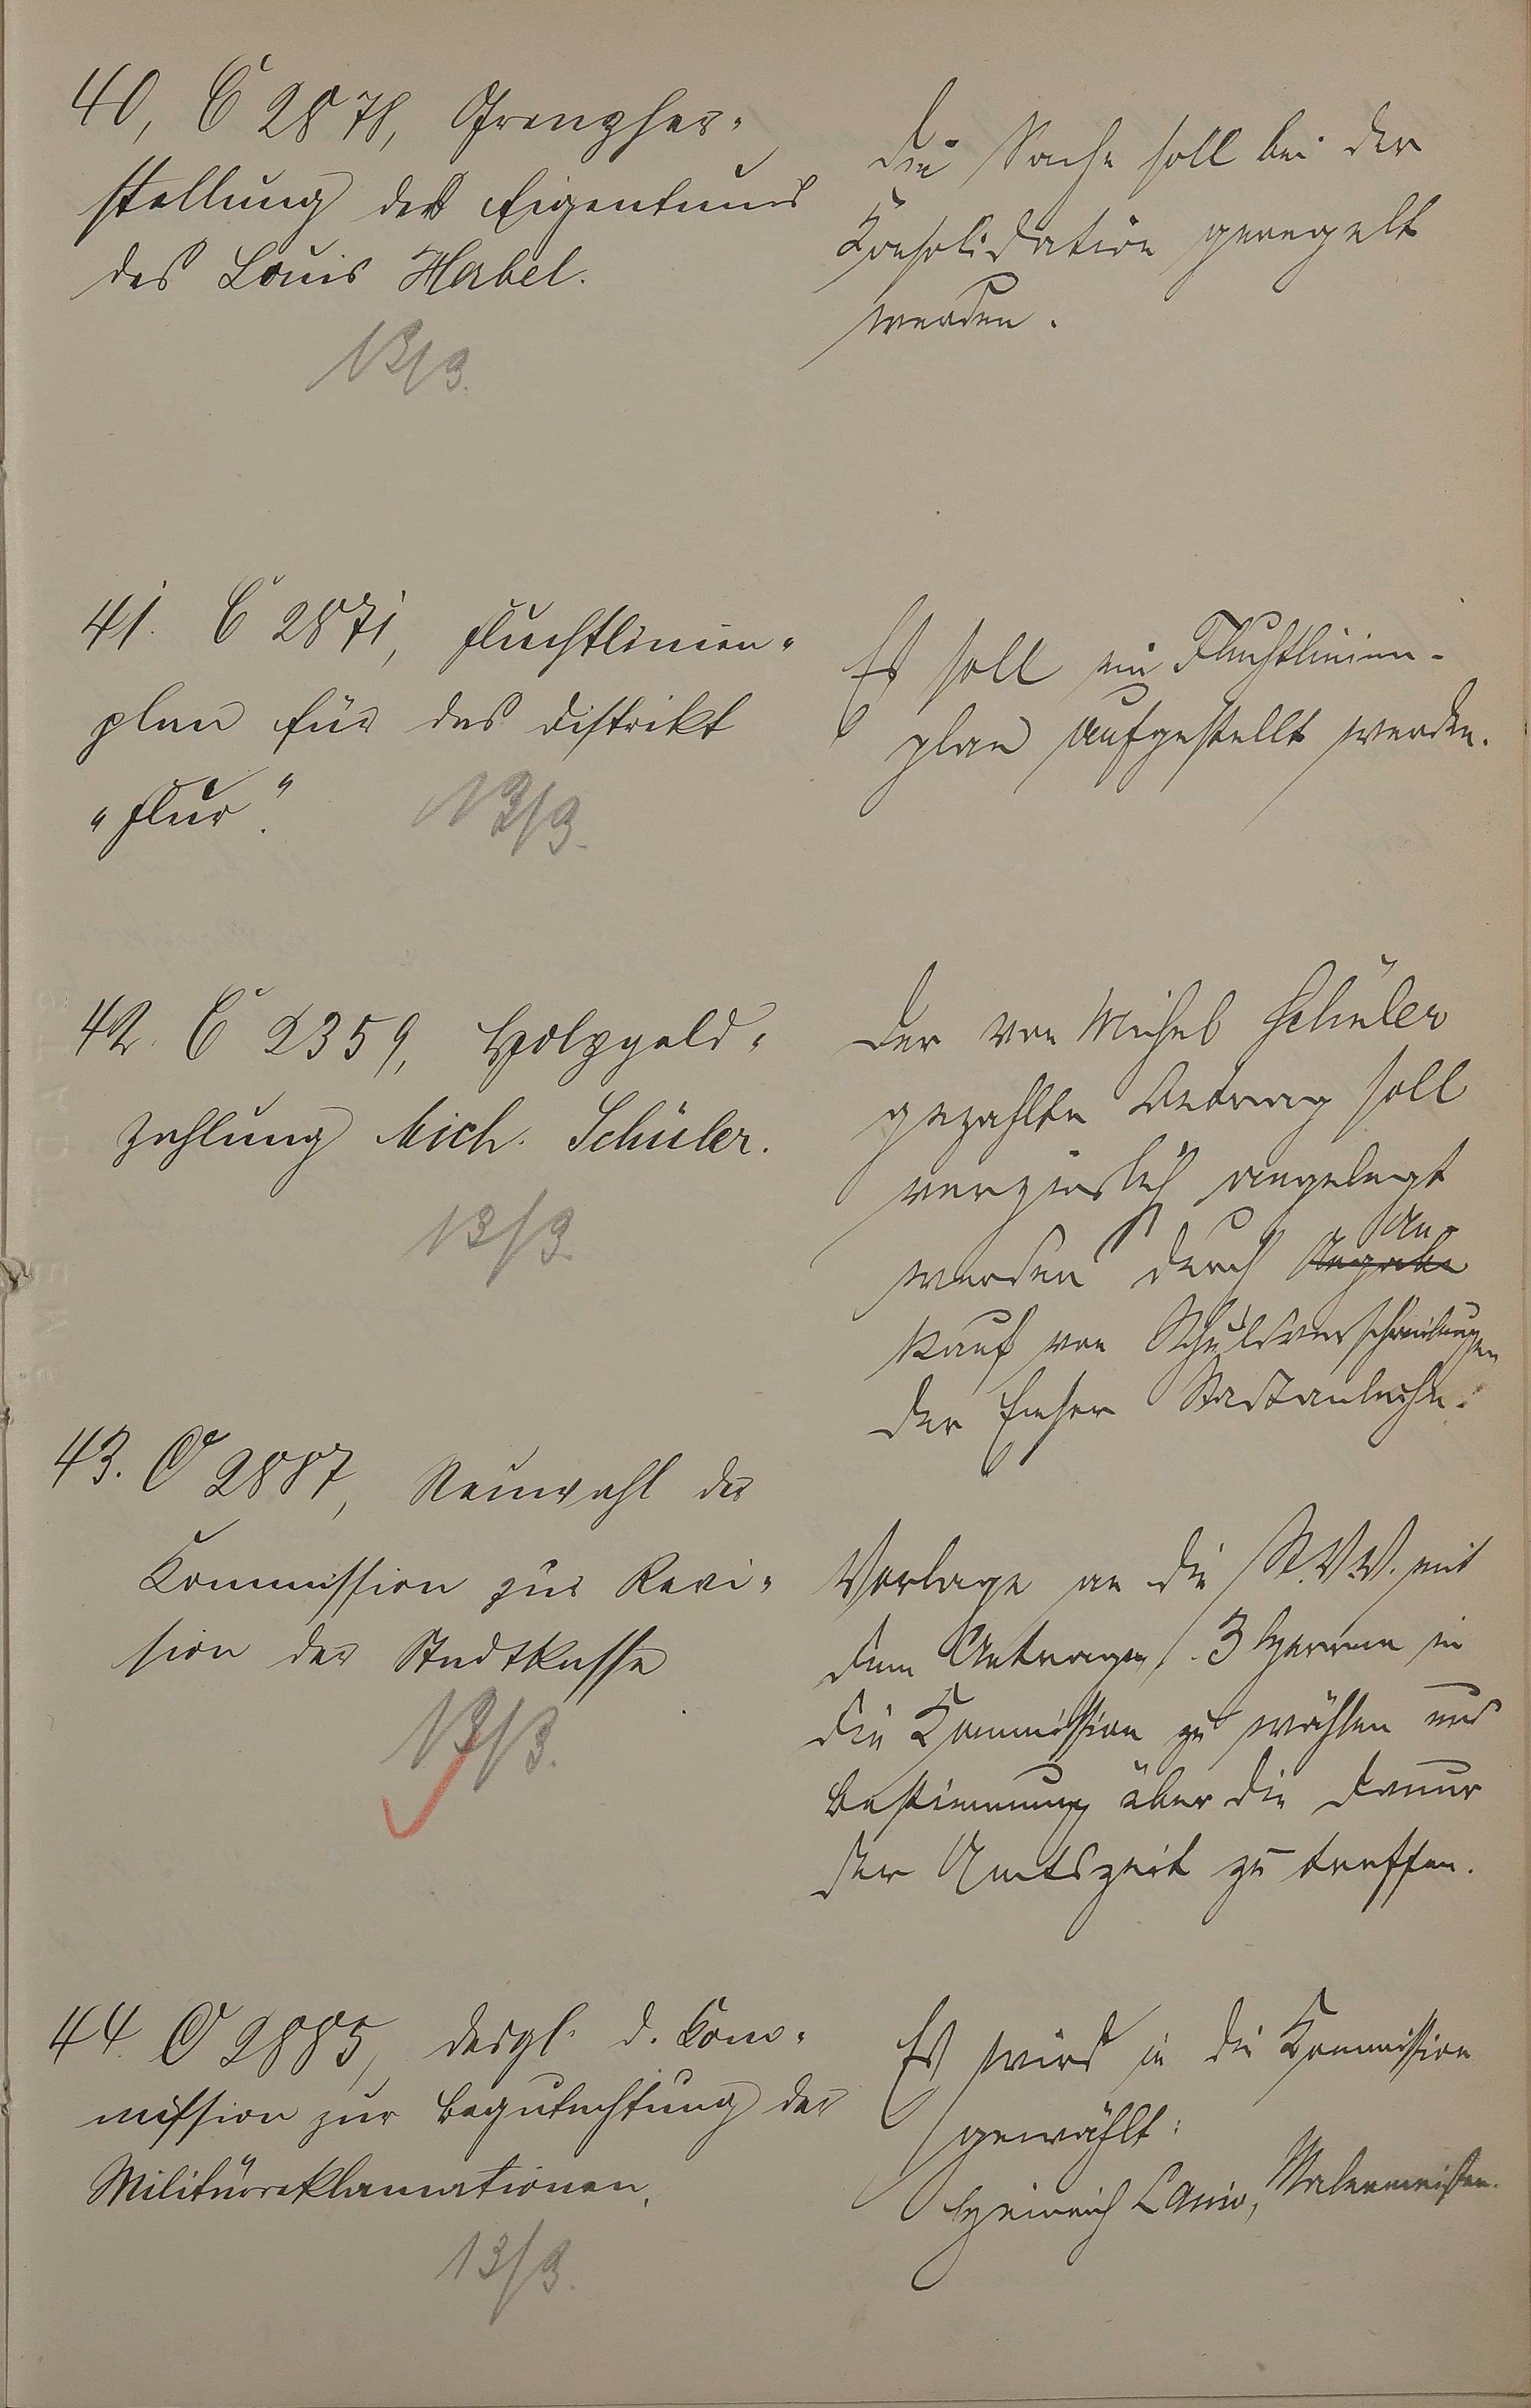 40, C 2878, Grenzher-
stellung des Eigentums
des Louis Habel.
13/3.
Die Sache soll bei der
Konsolidation geregelt
werden.
41. C 2871, Fluchtlinien-
plan für das Distrikt
"Flur".
13/3.
Es soll ein Fluchtlinien-
plan aufgestellt werden.
42. C 2359, Holzgeld-
zahlung Mich. Schüler.
13/3.
Der von Michel Schüler
gezahlte Betrag soll
verzinslich angelegt
werden durch An-
kauf von Schuldverschreibungen
der Emser Stadtanleihe.
43. C 2887, Neuwahl der
Kommission zur Revi-
sion der Stadtkasse
13/3.
Vorlage an die St.V.V. mit
dem Antrage, 3 Herren in
die Kommission zu wählen und
Bestimmung über die Dauer
der Amtszeit zu treffen.
44. C 2885, desgl. d. Kom-
mission zur Begutachtung der
Militärreklamationen.
13/3.
Es wird in die Kommission
gewählt:
Heinrich Malermeister.